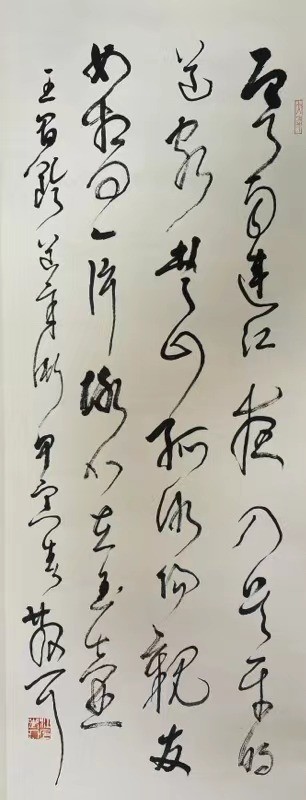 寒雨連江夜入吳平明
送客楚山孤洛陽親友
如相問一片冰心在玉壺
王昌齡送辛漸甲寅春